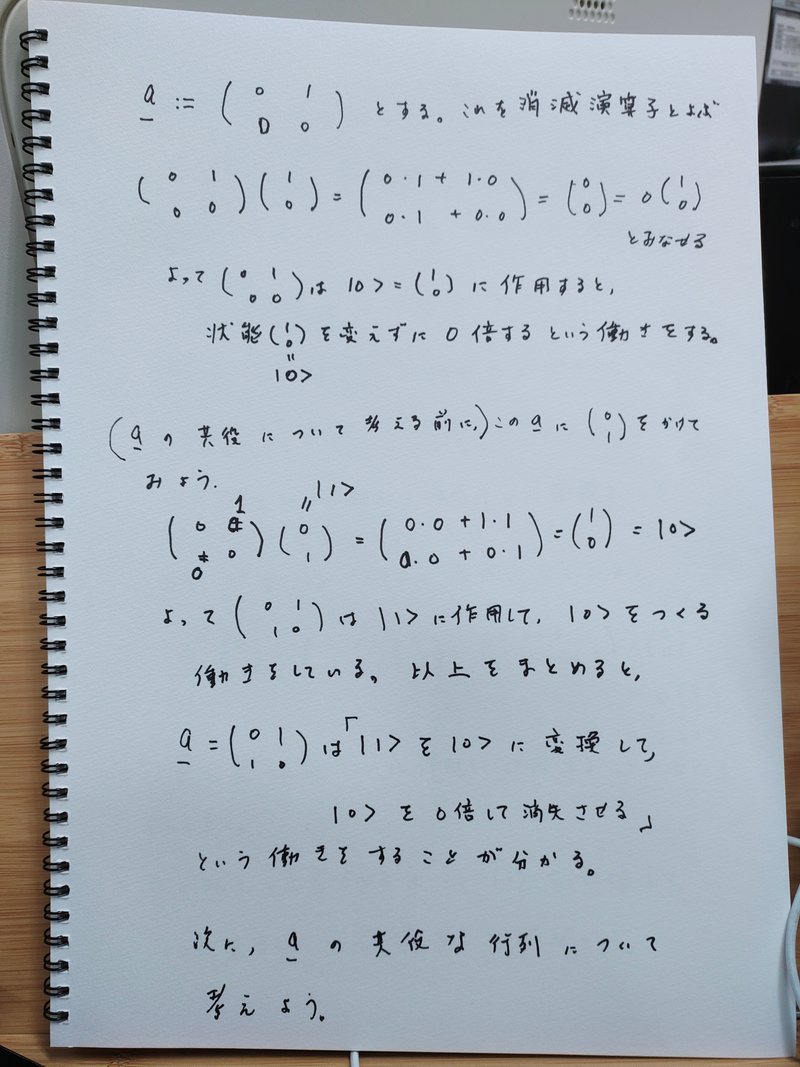 a := ( 0 1 / 0 0 ) とする。これを消滅演算子とよぶ
( 0 1 / 0 0 ) ( 1 / 0 ) = ( 0・1 + 1・0 / 0・1 + 0・0 ) = ( 0 / 0 ) = 0 ( 1 / 0 )
とみなせる
よって ( 0 1 / 0 0 ) は |0> = ( 1 / 0 ) に作用すると,
状態 ( 1 / 0 ) を変えずに 0倍するという働きをする。
〃
|0>
(a の共役について考える前に,) この a に ( 0 / 1 ) をかけて
みよう.
1 〃 |1>
( 0 / 0 ) ( 0 / 1 ) = ( 0・0 + 1・1 / 0・0 + 0・1 ) = ( 1 / 0 ) = |0>
0
よって ( 0 1 / 1 0 ) は |1> に作用して, |0> をつくる
働きをしている。以上をまとめると,
a = ( 0 1 / 1 0 ) は「|1> を |0> に変換して,
|0> を 0倍して消失させる」
という働きをすることが分かる。
次に, a の共役な行列について
考えよう。